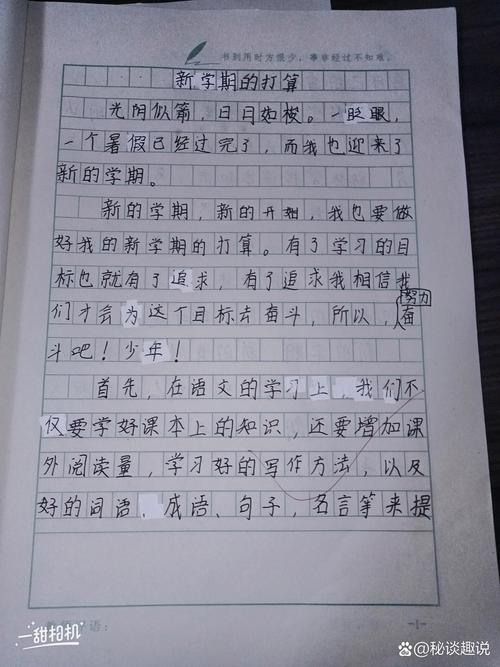 书到用时方恨少，事非经过不知难。
新学期的打算
光阴似箭，日月如梭。一眨眼，
一个暑假已经过完了，而我也迎来了
新的学期。
新的学期，新的开始，我也要做
好我的新学期的打算。有了学习的目
标也就有了追求，有了追求我相信我
们才会为这个目标去奋斗，所以，努力奋
斗吧！少年！
首先，在语文的学习上，我们不
仅要学好课本上的知识，还要增加课
外阅读量，学习好的写作方法，以及
好的词语、成语、句子，名言等来提
语：
-1-
一甜相机
秘谈趣说